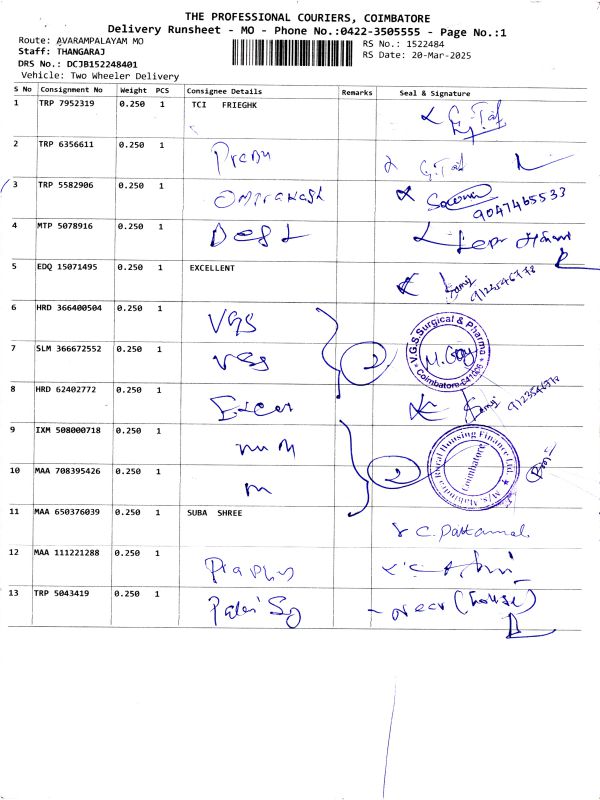 THE PROFESSIONAL COURIERS, COIMBATORE
Delivery Runsheet - MO - Phone No.:0422-3505555 - Page No.:1
Route: AVARAMPALAYAM MO
RS No.: 1522484
Staff: THANGARAJ
RS Date: 20-Mar-2025
DRS No.: DCJB152248401
Vehicle: Two Wheeler Delivery
S No Consignment No Weight PCS Consignee Details Remarks Seal & Signature
1 TRP 7952319 0.250 1 TCI FRIEGHK
2 TRP 6356611 0.250 1 Prabu
3 TRP 5582906 0.250 1 Omprakash 9047465533
4 MTP 5078916 0.250 1
5 EDQ 15071495 0.250 1 EXCELLENT
6 HRD 366400504 0.250 1 VGS
V.G.S.Surgical & Pharma
Coimbatore-641006
7 SLM 366672552 0.250 1 VGS 2
8 HRD 62402772 0.250 1
9 IXM 508000718 0.250 1
M/s. Mahindra Rural Housing Finance Ltd.
Coimbatore
10 MAA 708395426 0.250 1 2
11 MAA 650376039 0.250 1 SUBA SHREE C. Pattamal
12 MAA 111221288 0.250 1
13 TRP 5043419 0.250 1 (house)